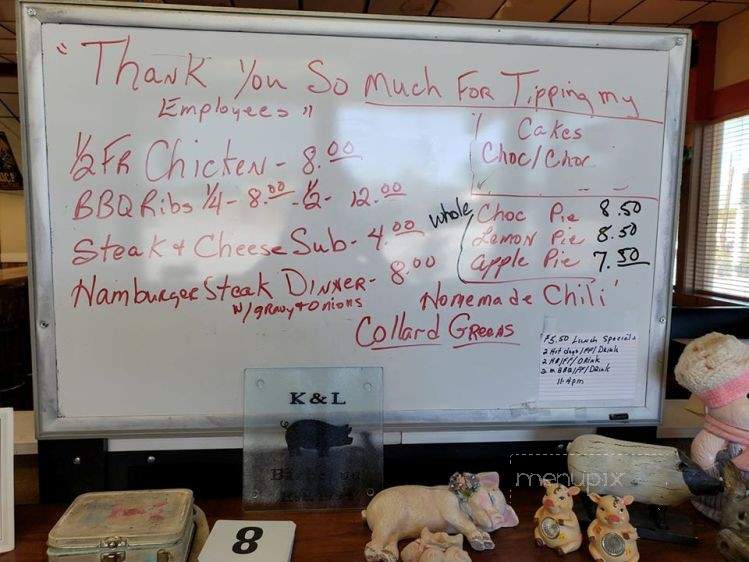 "Thank You So Much For Tipping my
Employees"
Cakes
Choc/Choc
1/2 FR Chicken - 8.00
BBQ Ribs 1/4 - 8.00 - 1/2 - 12.00
Steak + Cheese Sub - 4.00
Hamburger Steak Dinner - 8.00
w/gravy + onions
whole
Choc Pie 8.50
Lemon Pie 8.50
apple Pie 7.50
Homemade Chili
Collard Greens
$5.50 Lunch Specials
2 Hot dogs/FF/Drink
2 HB/FF/DRink
2 m BBQ/FF/Drink
11-4pm
K & L
8
menupix